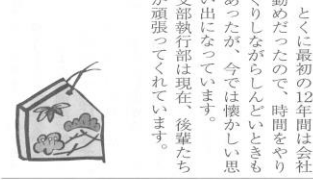 とくに最初の12年間は会社
勤めだったので、時間をやり
くりしながらしんどいときも
あったが、今では懐かしい思
い出になっています。
支部執行部は現在、後輩たち
が頑張ってくれています。